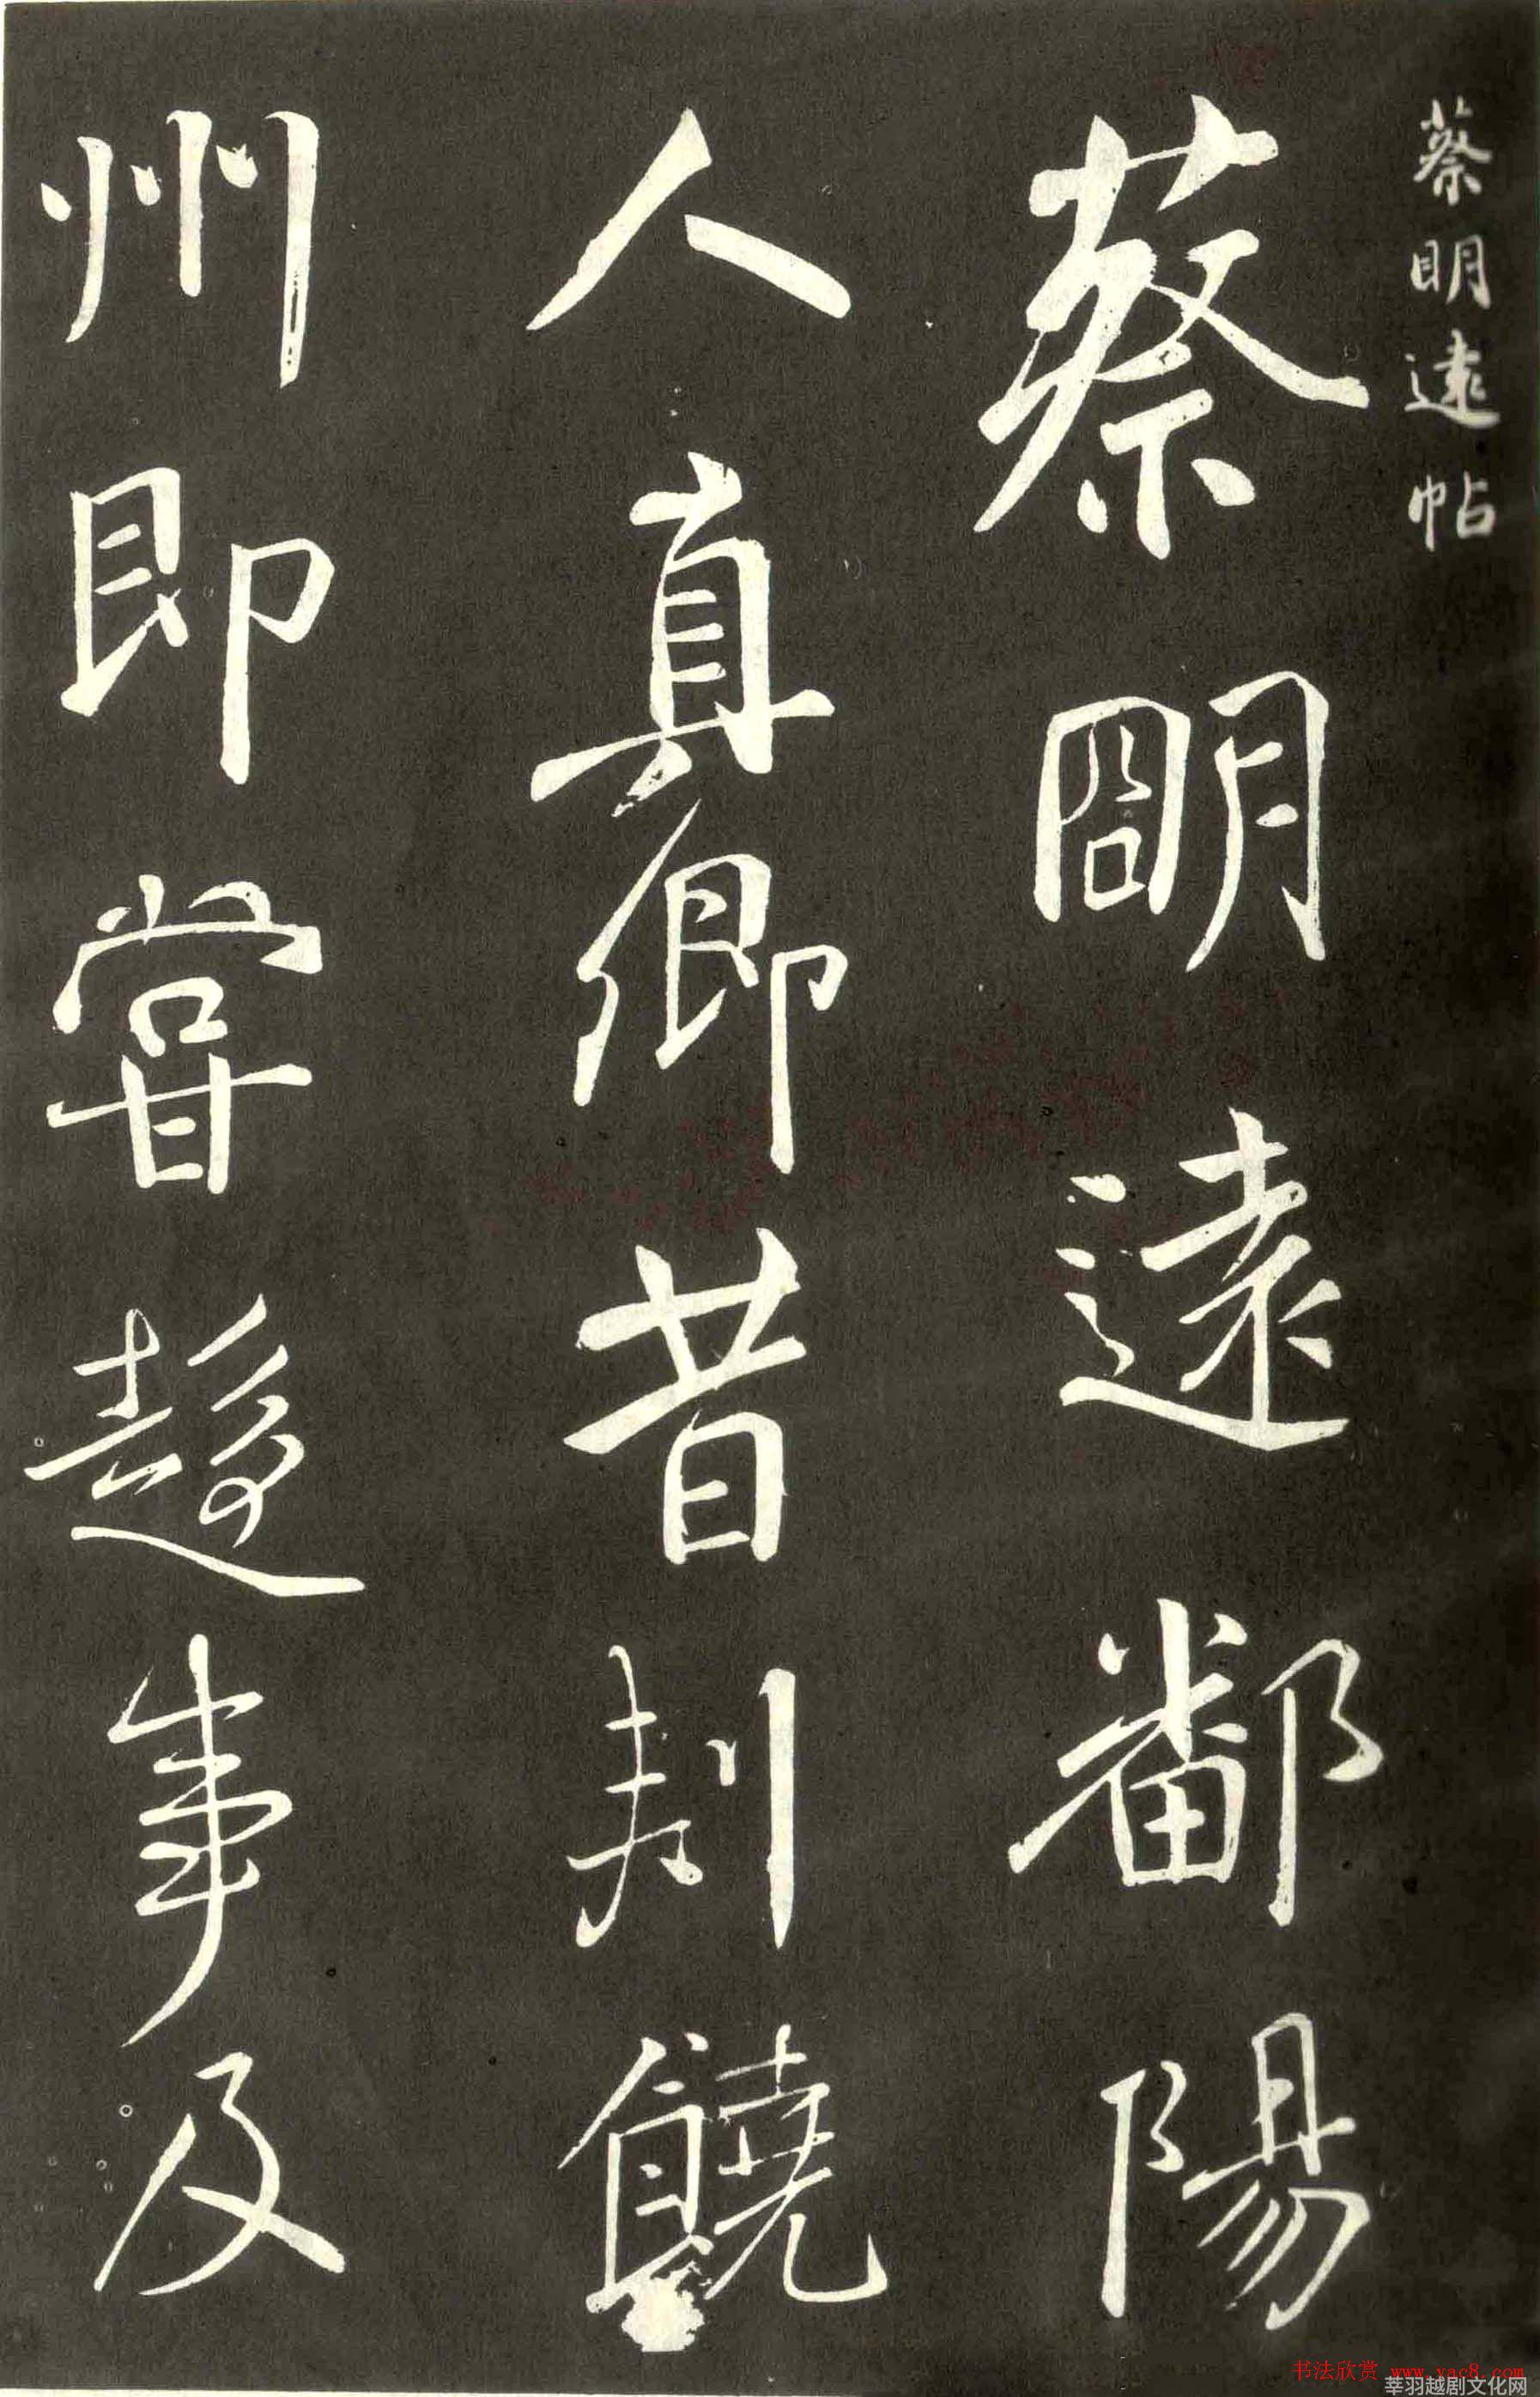 蔡明遠帖
蔡明遠鄱陽
人真卿昔刾饒
州即甞趍事及
书法欣赏 www.yac8.com
莘羽越剧文化网